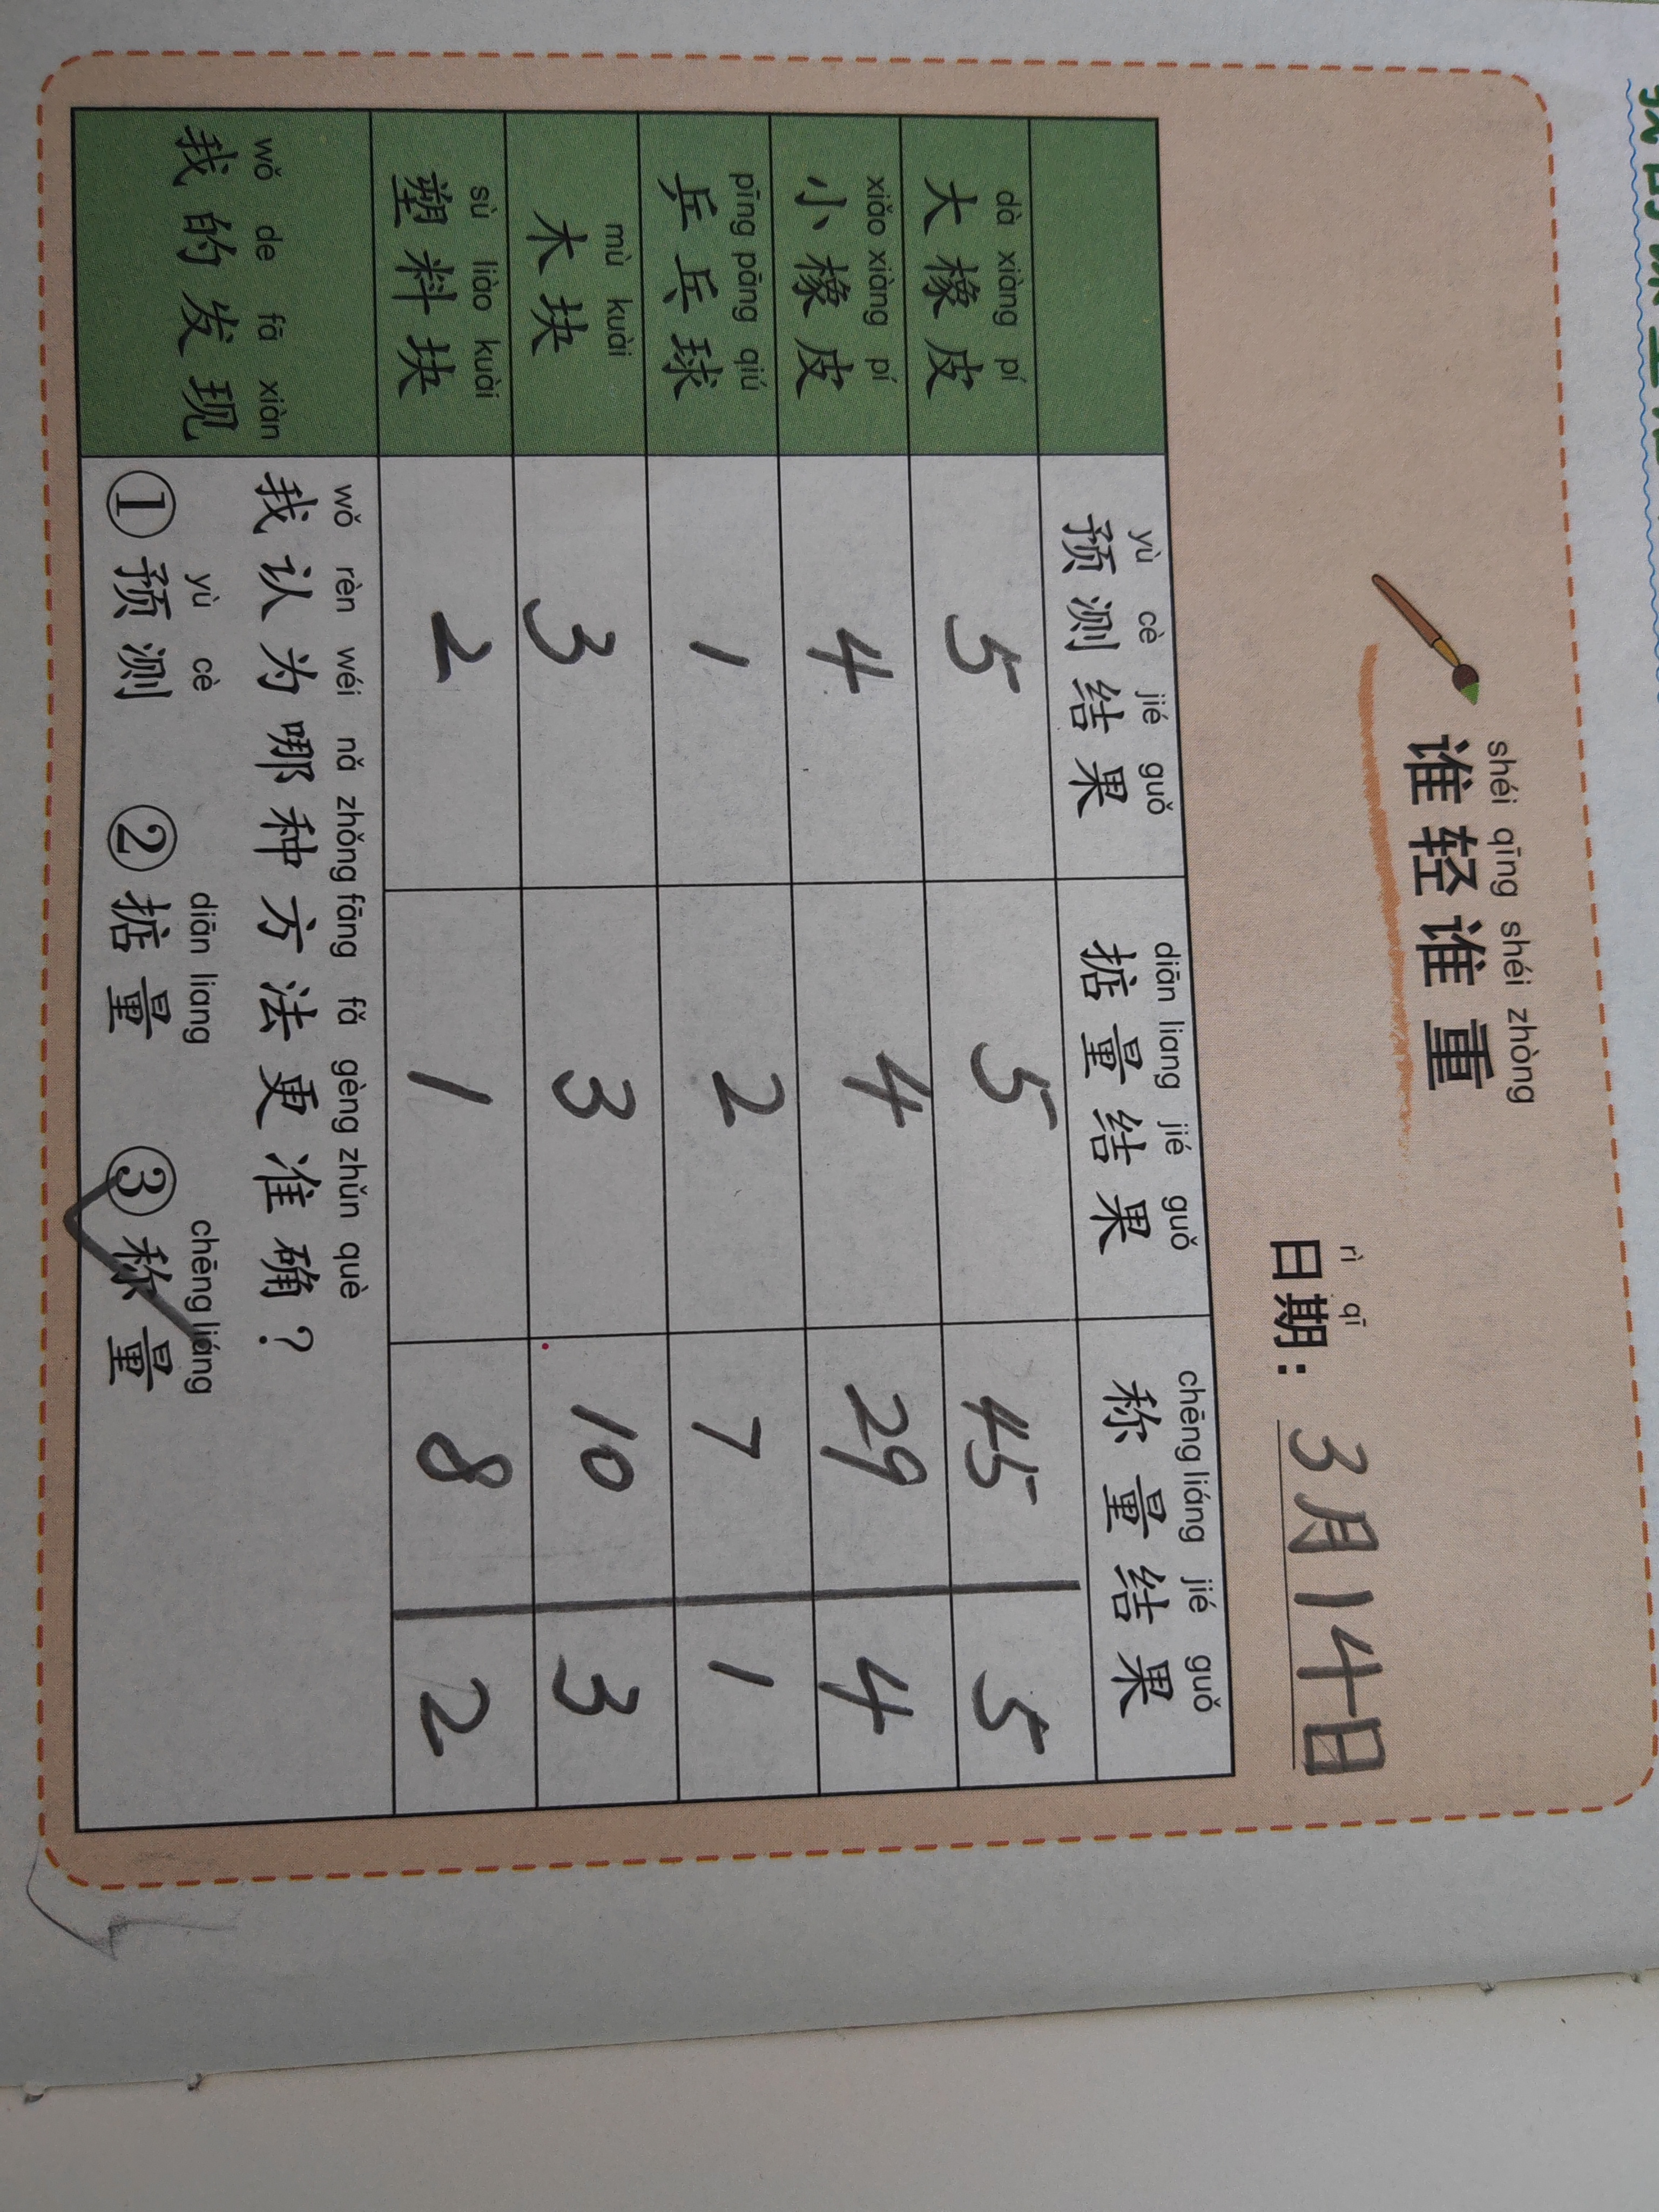 shéi qīng shéi zhòng
谁轻谁重
rì qī
日期：3月14日
yù cè jié guǒ diān liang jié guǒ chēng liáng jié guǒ
预测结果 掂量结果 称量结果
dà xiàng pí
大橡皮 5 5 45 5
xiǎo xiàng pí
小橡皮 4 4 29 4
pīng pāng qiú
乒乓球 1 2 7 1
mù kuài
木块 3 3 10 3
sù liào kuài
塑料块 2 1 8 2
wǒ de fā xiàn
我的发现
wǒ rèn wéi nǎ zhǒng fāng fǎ gèng zhǔn què
我认为哪种方法更准确？
yù cè diān liang chēng liáng
①预测 ②掂量 ③称量